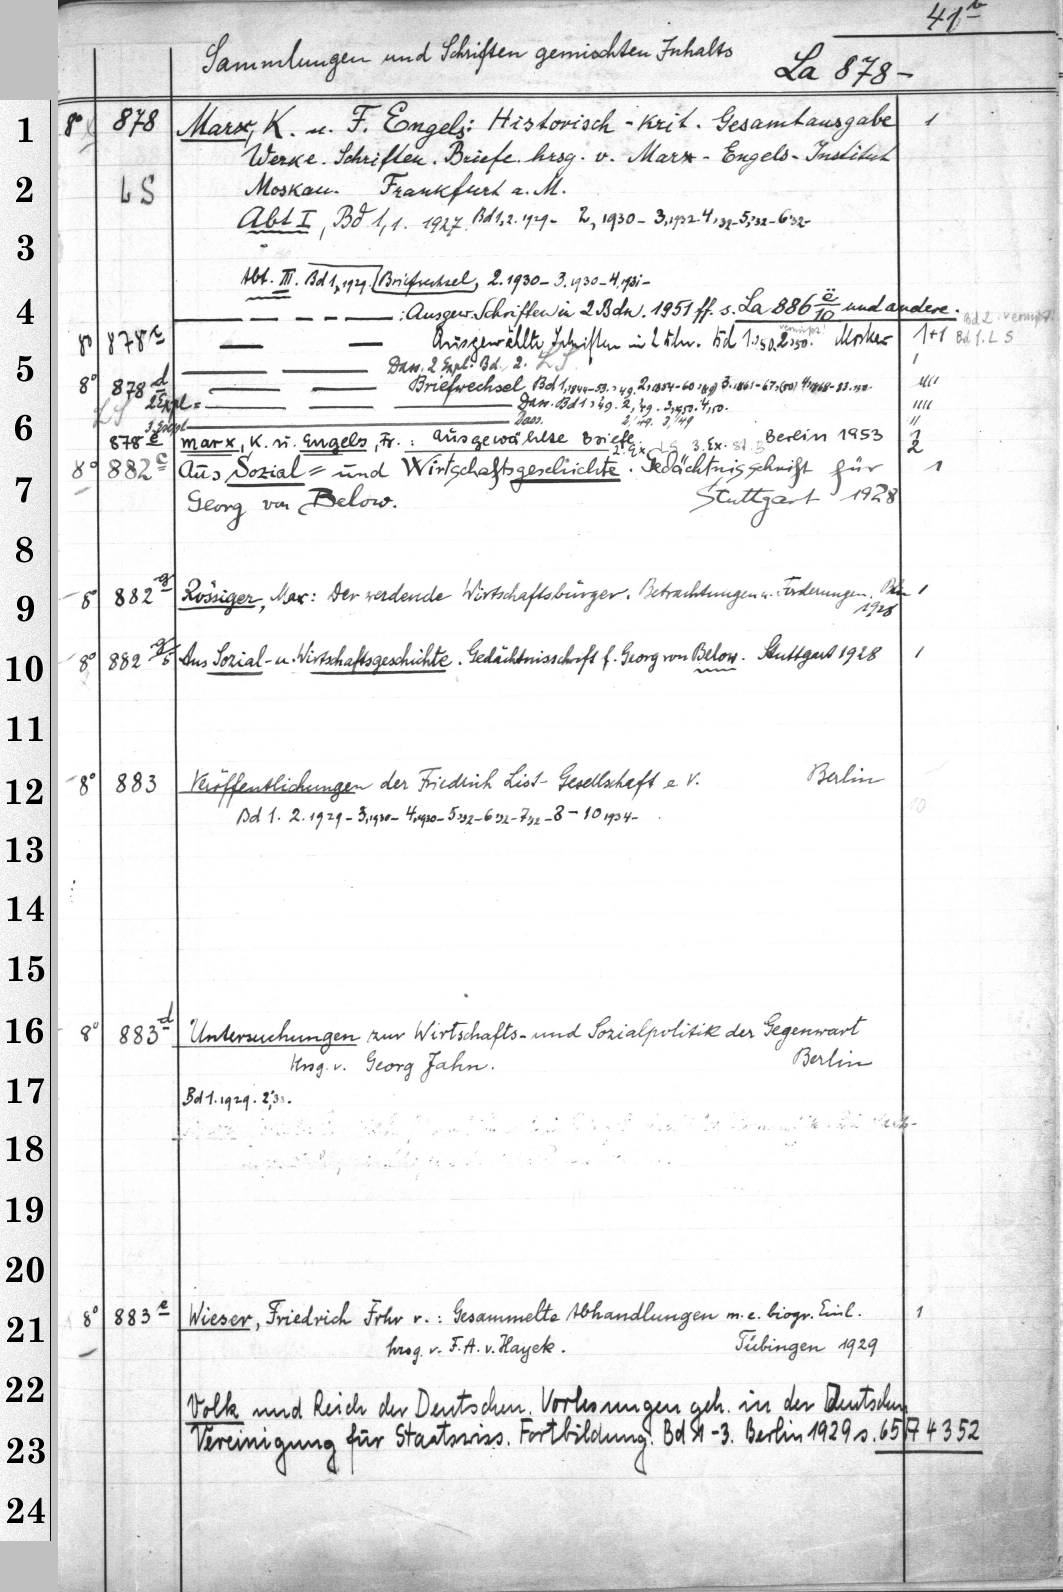 41
Sammlungen und Schriften gemischten Inhalts La 878-
1 8° 878 Marx, K. u. F. Engels: Historisch-krit. Gesamtausgabe 1
Werke. Schriften. Briefe. hrsg. v. Marx-Engels-Institut
2 LS Moskau. Frankfurt a. M.
Abt I, Bd 1,1. 1927. Bd 1,2. 1929- 2, 1930- 3,1932- 4,32- 5,32- 6,32-
3
Abt. III. Bd 1,1929. Briefwechsel, 2.1930- 3.1930- 4.1931-
4 : Ausgew. Schriften in 2 Bdn. 1951 ff. s. La 886 ë/10 und andere.
8° 878 Ausgewählte Schriften in 2 Bdn. Bd 1.50. 2.50. Moskau 1+1 Bd 1. LS
5 Dass. 2 Expl. Bd. 2. LS
8° 878 d Briefwechsel Bd 1,1844-53.49. 2,1854-60.49 3.1861-67.(50) 4,1868-83.50.
LS 2 Expl = Dass. Bd 1.49. 2,49. 3,1950. 4,50.
6 3. Expl. Dass. 2,49. 3,49
878 e Marx, K. u. Engels, Fr.: Ausgewählte Briefe. Berlin 1953 1
2. Ex. LS 3. Ex. 2
8° 882 c Aus Sozial= und Wirtschaftsgeschichte. Gedächtnisschrift für 1
7 Georg von Below. Stuttgart 1928
8
9 8° 882 g Rössiger, Max: Der werdende Wirtschaftsbürger. Betrachtungen u. Forderungen. Bln 1
1928
10 8° 882 g/5 Aus Sozial- u. Wirtschaftsgeschichte. Gedächtnisschrift f. Georg von Below. Stuttgart 1928 1
11
12 8° 883 Veröffentlichungen der Friedrich List-Gesellschaft e. V. Berlin
Bd 1. 2. 1929- 3,1930- 4,1930- 5,32- 6,32- 7,32- 8- 10 1934-
13
14
15
16 8° 883 d Untersuchungen zur Wirtschafts- und Sozialpolitik der Gegenwart
Hrsg. v. Georg Jahn. Berlin
17 Bd 1. 1929. 2,33.
18
19
20
21 8° 883 e Wieser, Friedrich Frhr v.: Gesammelte Abhandlungen m. e. biogr. Einl. 1
hrsg. v. F. A. v. Hayek. Tübingen 1929
22 Volk und Reich der Deutschen. Vorlesungen geh. in der Deutschen
23 Vereinigung für Staatswiss. Fortbildung. Bd 1-3. Berlin 1929 s. 65 A 4352
24